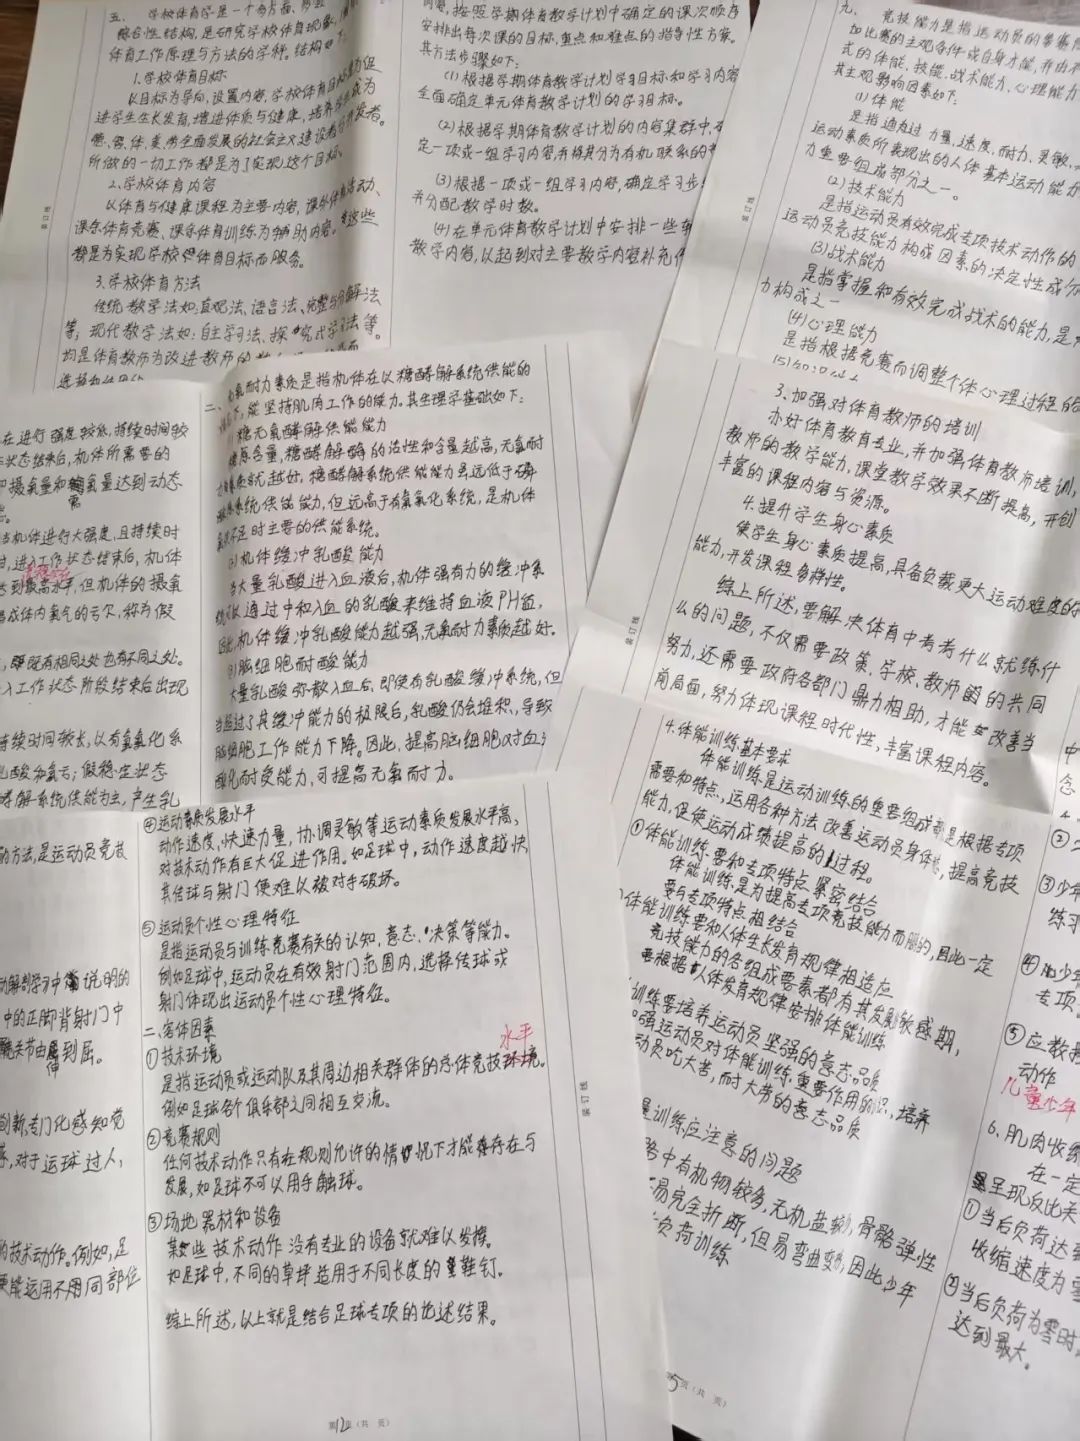 五、学校体育学是一个多方面、
综合性结构,是研究学校体育现象,
体育工作原理与方法的学科。结构如下:
1.学校体育目标
以目标为导向,设置内容,学校体育目标为促
进学生生长发育,增进体质与健康,培养学生成为
德、智、体、美、劳全面发展的社会主义建设者与接班者。
所做的一切工作都是为了实现这个目标。
2.学校体育内容
以体育与健康课程为主要内容,课外体育活动、
课余体育竞赛、课余体育训练为辅助内容。这些
都是为实现学校体育目标而服务。
3.学校体育方法
传统教学法如:直观法、语言法、完整与分解法
等,现代教学法如:自主学习法、探究式学习法等。
均是体育教师为改进教师的
内容,按照学期体育教学计划中确定的课次顺序
安排出每次课的目标、重点和难点的指导性方案。
其方法步骤如下:
(1)根据学期体育教学计划学习目标和学习内容
全面确定单元体育教学计划的学习目标。
(2)根据学期体育教学计划的内容集群中,
定一项或一组学习内容,并将其分为有机联系的
(3)根据一项或一组学习内容,确定学习步
并分配教学时数。
(4)在单元体育教学计划中安排一些
教学内容,以起到对主要教学内容补充
九、竞技能力是指运动员的参赛
加比赛的主观条件或自身才能,并由不
式的体能、技能、战术能力、心理能力
其主观影响因素如下:
(1)体能
是指通过力量、速度、耐力、灵敏、
运动素质所表现出的人体基本运动能
力重要组成部分之一。
(2)技术能力
是指运动员有效完成专项技术动作的
运动员竞技能力构成因素的决定性成分
(3)战术能力
是指掌握和有效完成战术的能力,是
力构成之一
(4)心理能力
是指根据竞赛而调整个体心理过程的
在进行强度较低,持续时间较
状态结束后,机体所需要的
摄氧量和需氧量达到动态
当机体进行大强度,且持续时
进工作状态结束后,机体
达到最高水平,但机体的摄氧
造成体内氧气的亏欠,称为假
,既有相同之处也有不同之处。
入工作状态阶段结束后出现
持续时间较长,以有氧氧化系
乳酸和氧亏;假稳定状态
酵解系统供能为主,产生乳
二、无氧耐力素质是指机体在以糖酵解系统供能的
情况下,能坚持肌肉工作的能力。其生理学基础如下:
糖无氧酵解供能能力
糖原含量,糖酵解酶的活性和含量越高,无氧耐
力素质就越好,糖酵解系统供能能力虽远低于磷
酸原系统供能能力,但远高于有氧氧化系统,是机体
氧供不足时主要的供能系统。
机体缓冲乳酸能力
当大量乳酸进入血液后,机体强有力的缓冲系
统可以通过中和入血的乳酸来维持血液PH值,
因此,机体缓冲乳酸能力越强,无氧耐力素质越好。
脑细胞耐酸能力
大量乳酸弥散入血后,即使有乳酸缓冲系统,但
当超过了其缓冲能力的极限后,乳酸仍会堆积,导致
脑细胞工作能力下降。因此,提高脑细胞对血
酸化耐受能力,可提高无氧耐力。
3.加强对体育教师的培训
办好体育教育专业,并加强体育教师培训,
教师的教学能力,课堂教学效果不断提高,开创
丰富的课程内容与资源。
4.提升学生身心素质
使学生身心素质提高,具备负载更大运动难度的
能力,开发课程多样性。
综上所述,要解决体育中考考什么就练什
么的问题,不仅需要政策、学校、教师的共同
努力,还需要政府各部门鼎力相助,才能改善当
前局面,努力体现课程时代性,丰富课程内容。
的方法,是运动员竞技
动解剖学习中说明的
中的正脚背射门中
髋关节由伸到屈。
创新,专门化感知觉
,对于运球过人,
的技术动作。例如,足
便能运用不同部位
④运动素质发展水平
动作速度,快速力量,协调灵敏等运动素质发展水平高,
对技术动作有巨大促进作用。如足球中,动作速度越快
其传球与射门便难以被对手破坏。
⑤运动员个性心理特征
是指运动员与训练竞赛有关的认知、意志、决策等能力。
例如足球中,运动员在有效射门范围内,选择传球或
射门体现出运动员个性心理特征。
二、客体因素
①技术环境
水平
是指运动员或运动队及其周边相关群体的总体竞技环境。
例如足球各个俱乐部之间相互交流。
②竞赛规则
任何技术动作只有在规则允许的情况下才能存在与
发展,如足球不可以用手触球。
③场地器材和设备
某些技术动作没有专业的设备就难以发挥。
如足球中,不同的草坪适用于不同长度的鞋钉。
综上所述,以上就是结合足球专项的论述结果。
第12页(共 页)
4.体能训练基本要求
体能训练是运动训练的重要组成部是根据专项
需要和特点,运用各种方法改善运动员身体,提高竞技
能力,促使运动成绩提高的过程。
①体能训练要和专项特点紧密结合
体能训练是为提高专项竞技能力而服的,因此一定
要与专项特点相结合
体能训练要和人体生长发育规律相适应
竞技能力的各组成要素都有其发展敏感期,
要根据人体发育规律安排体能训练
训练要培养运动员坚强的意志品质
加强运动员对体能训练重要作用的识,培养
动员吃大苦,耐大劳的意志品质
量训练应注意的问题
中有机物较多,无机盐较少,骨骼弹性
不易完全折断,但易弯曲变形,因此少年
负荷训练
5页(共 页)
中
念
②
③少年
练习
④少年
专项
⑤应数
动作
儿童少年
6、肌肉收缩
在一定
呈现反比关
①当后负荷达
收缩速度为零
②当后负荷为零时
达到最大。
装订线
装订线
装订线
装订线